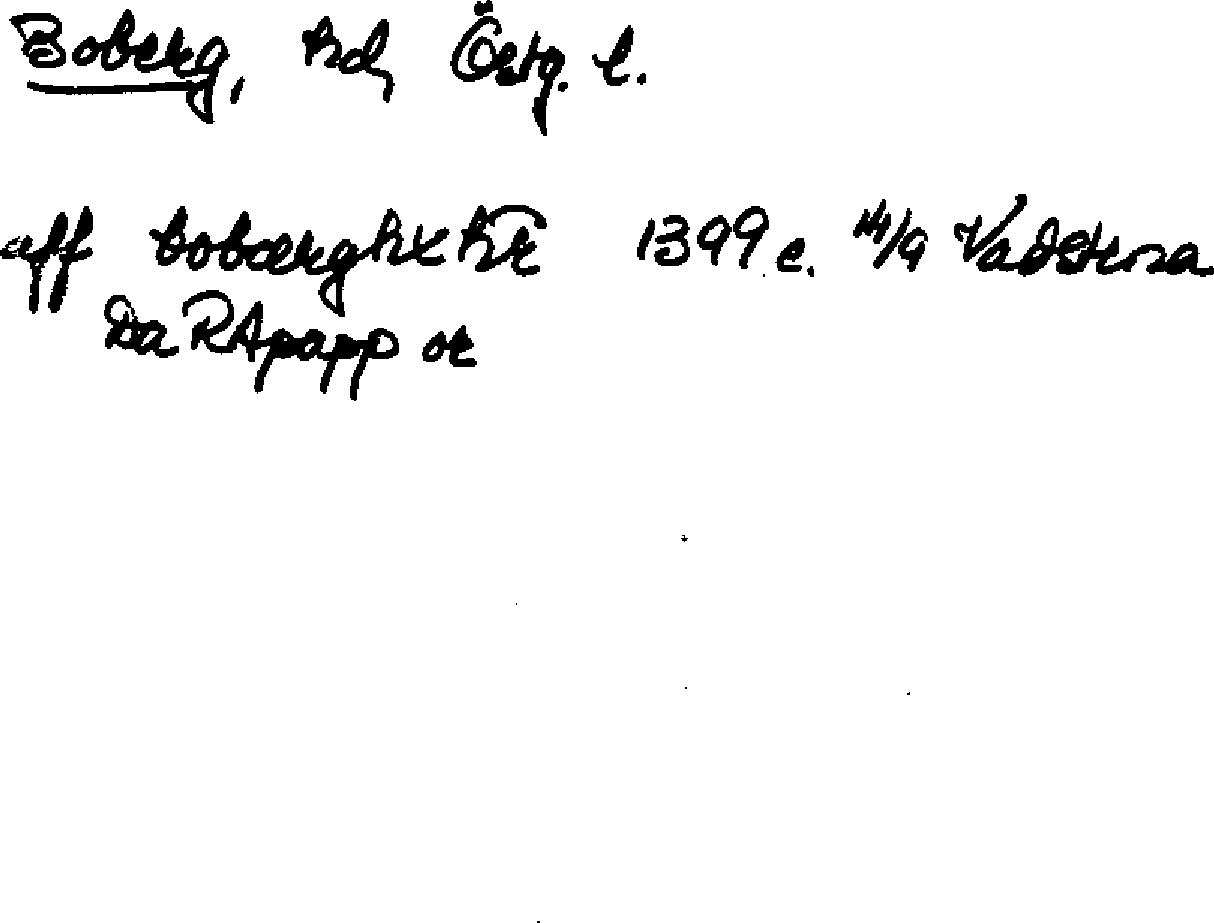 Boberg, hd, Östg. l.
aff bobærghx hr 1399 e. 14/9 Vadstena
Da RApapp or